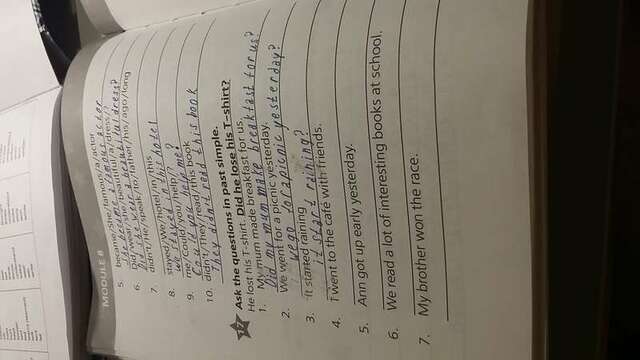 MODULE 8
5. became/She/famous/a/actor
She became a famous actor
6. Did/wear/she/beautiful/a/dress/?
Did she wear a beautiful dress?
7. didn't/He/speak/to/father/his/ago/long
8. stayed/We/hotel/in/this
We stayed in this hotel
9. me/Could/you/help/?
Could you help me?
10. didn't/They/read/this book
They didn't read this book
17 Ask the questions in past simple.
He lost his T-shirt. Did he lose his T-shirt?
1. My mum made breakfast for us.
Did my mum make breakfast for us?
2. We went for a picnic yesterday.
we go for a picnic yesterday?
3. It started raining
it start raining?
4. I went to the café with friends.
5. Ann got up early yesterday.
6. We read a lot of interesting books at school.
7. My brother won the race.